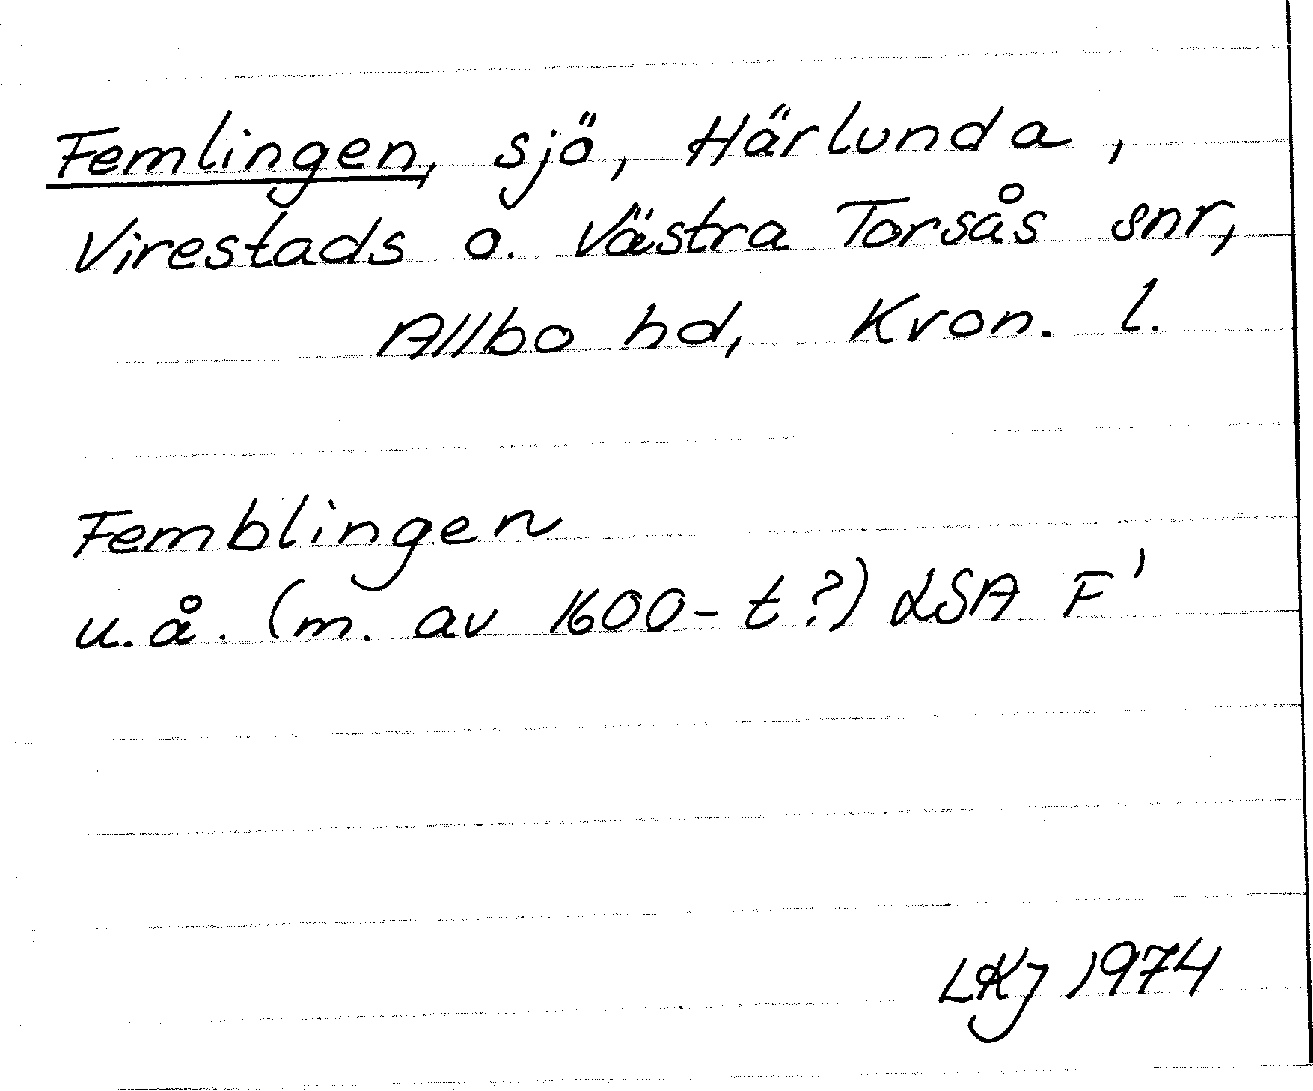 Femlingen, sjö, Härlunda,
Virestads o. Västra Torsås snr,
Allbo hd, Kron. l.
Femblingen
u.å. (m. av 1600-t?) LSA F'
LKJ 1974